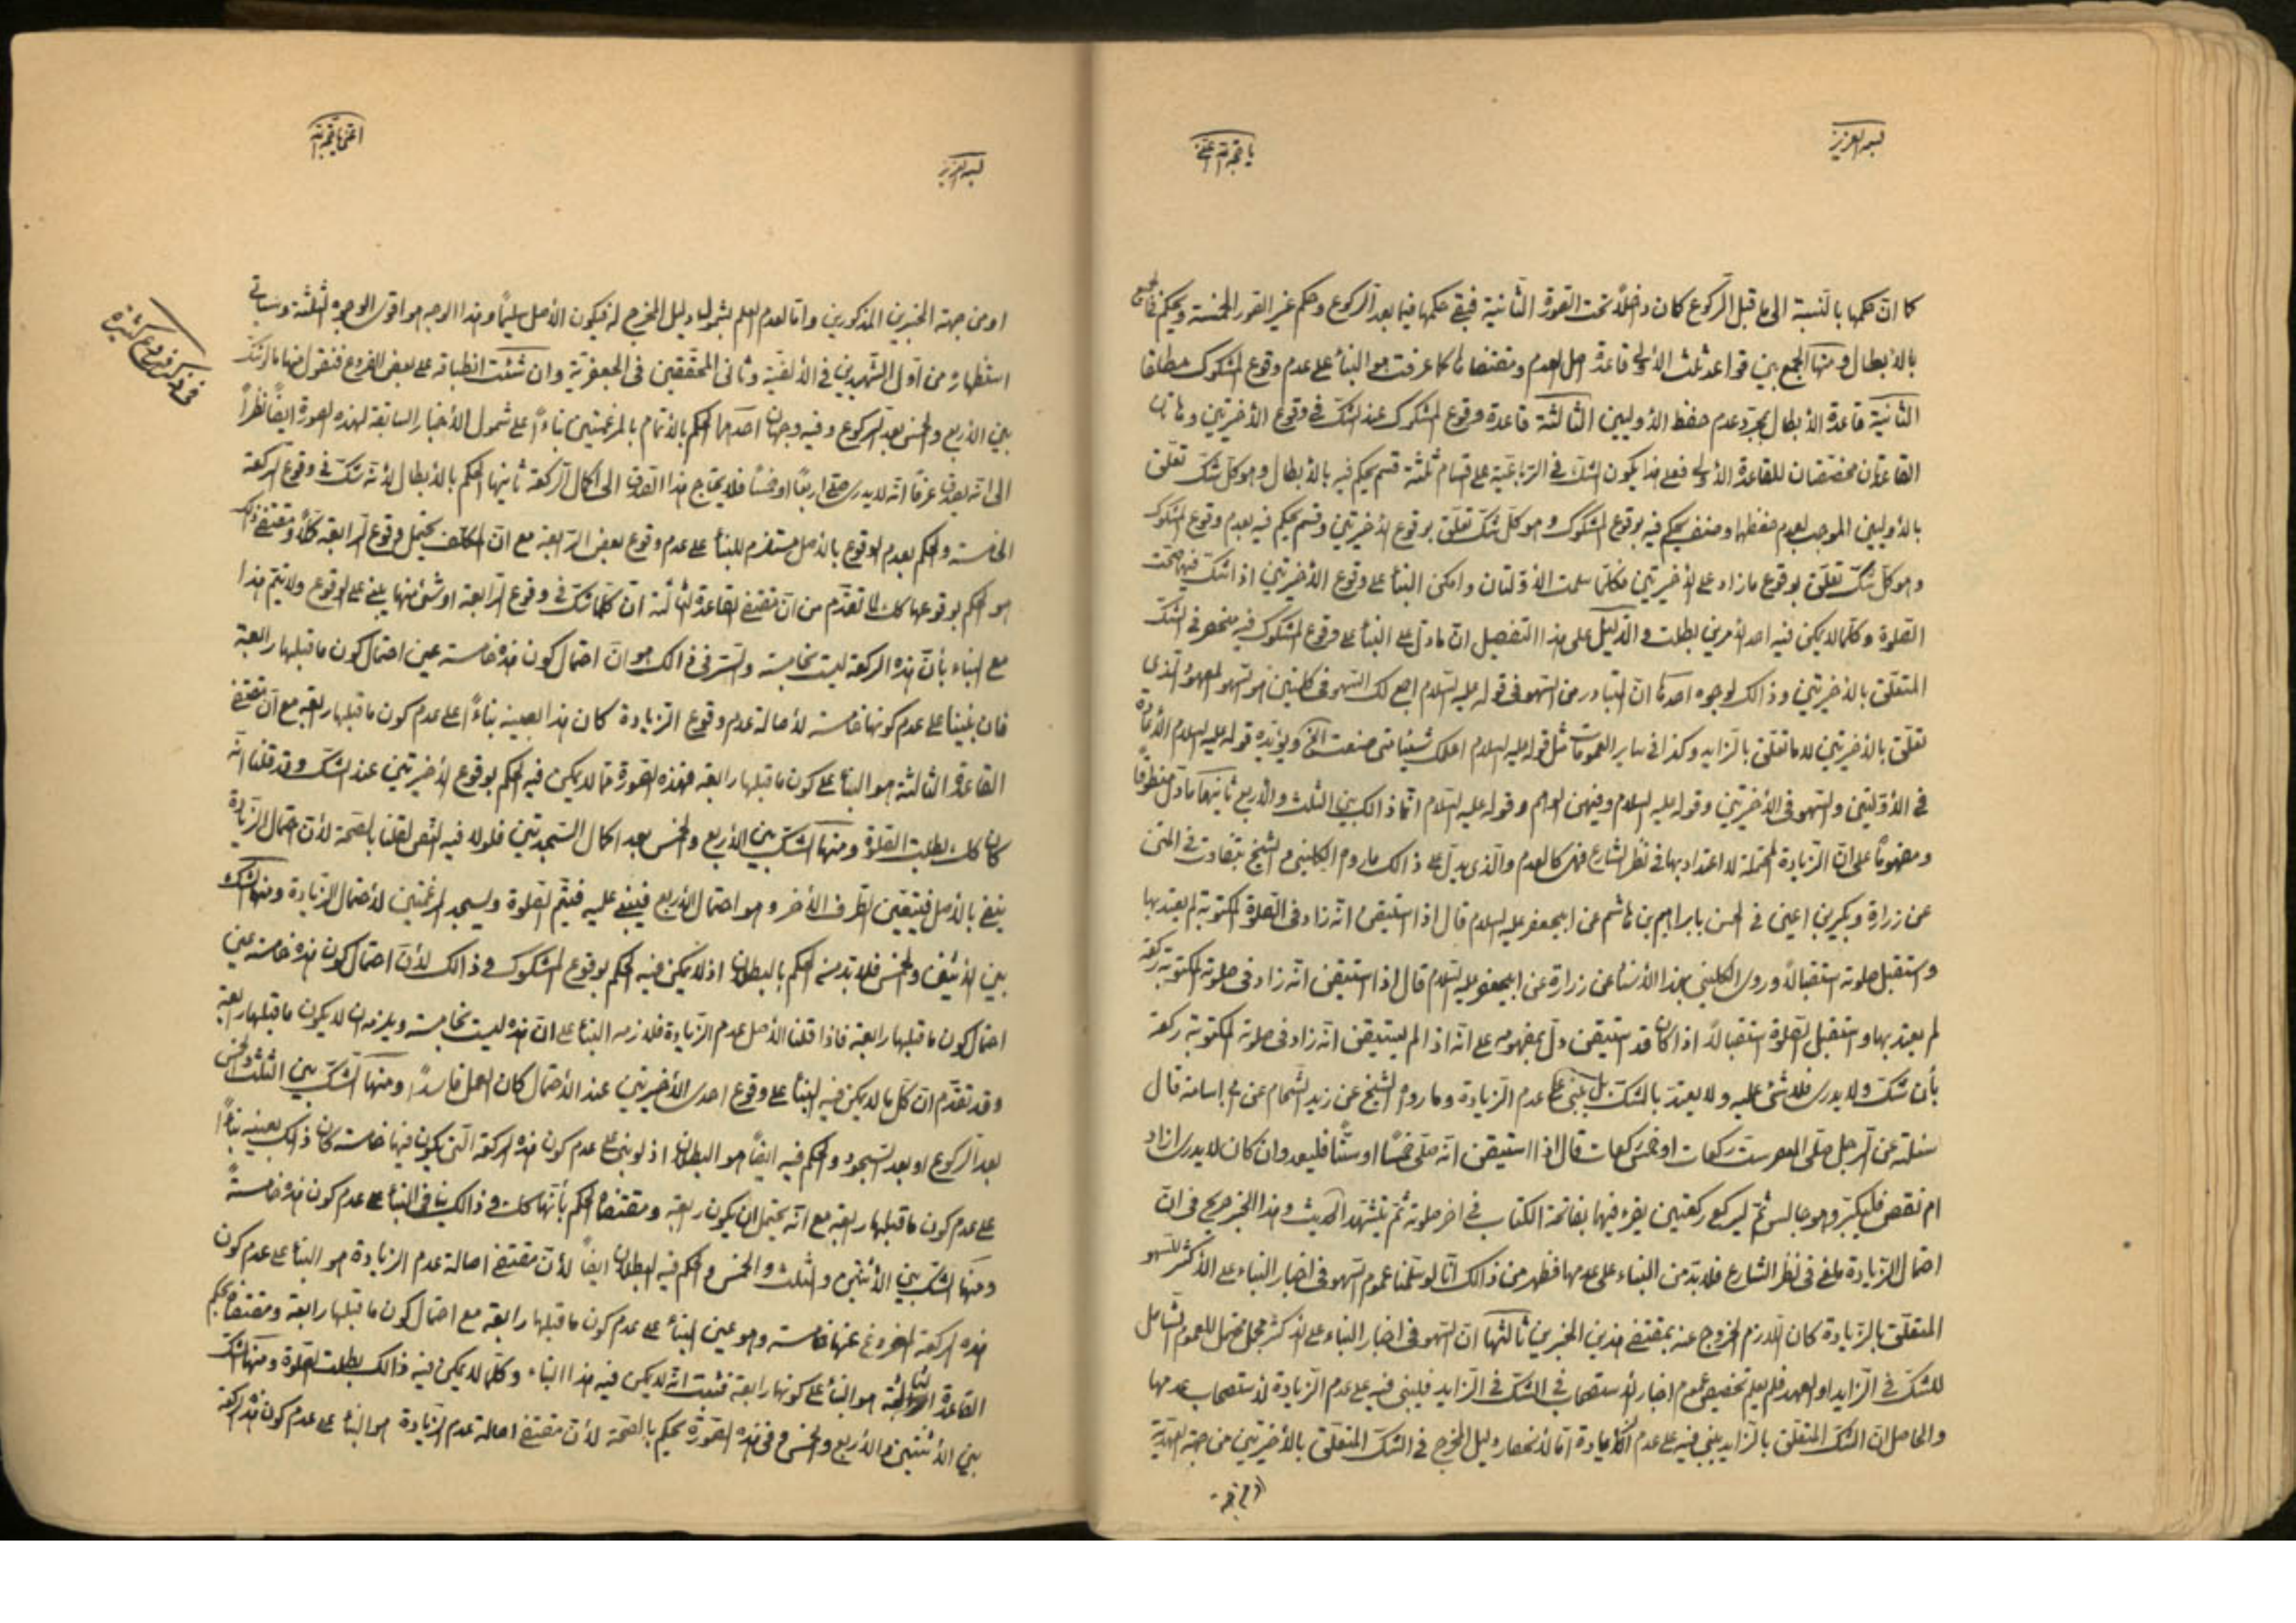 بسمه العزيز
كما ان حكمها بالنسبة الى ما قبل الركوع كان داخلا تحت الصورة الثانية فبقى حكمها فيما بعد الركوع وحكم غير الصور الخمسة ويحكم في الجميع
بالابطال ومنها الجمع بين قواعد ثلث الاولى قاعدة اصل العدم ومقتضاها كما عرفت هو البناء على عدم وقوع المشكوك مطلقا
الثانية قاعدة الابطال بمجرد عدم حفظ الاوليين الثالثة قاعدة وقوع المشكوك عند الشك في وقوع الاخيرتين وهاتان
القاعدتان مخصصتان للقاعدة الاولى فعلى هذا يكون الشك في الرباعية على اقسام ثلثة قسم يحكم فيه بالابطال وهو كل شك تعلق
بالاوليين الموجب لعدم حفظهما وصنف يحكم فيه بوقوع المشكوك وهو كل شك تعلق بوقوع الاخيرتين وقسم يحكم فيه بعدم وقوع المشكوك
وهو كل شك تعلق بوقوع ما زاد على الاخيرتين فكلما سلمت الاولتان وامكن البناء على وقوع الاخيرتين اذا شك فيهما صحت
الصلوة وكلما لا يمكن فيه احد الامرين بطلت والدليل على هذا التفصيل ان ما دل على البناء على وقوع المشكوك فيه منحصر في الشك
المتعلق بالاخيرتين وذالك لوجوه احدها ان المتبادر من السهو في قوله عليه السلام اجمع لك السهو في كلمتين هو السهو المعهود الذى
تعلق بالاخيرتين لا ما تعلق بالزايد وكذا في ساير العمومات مثل قوله عليه السلام اعلمك شيئا متى صنعت الخ ويؤيده قوله عليه السلام الاعادة
في الاولتين والسهو في الاخيرتين وقوله عليه السلام وفيهن الوهم وقوله عليه السلام انما ذالك بين الثلث والاربع ثانيها ما دل منطوقا
ومفهوما على ان الزيادة المحتملة لا اعتداد بها في نظر الشارع فهى كالعدم والذى يدل على ذالك ما روم الكلينى و الشيخ بتفاوت في المتن
عن زرارة وبكير بن اعين في الحسن بابراهيم بن هاشم عن ابيجعفر عليه السلام قال اذا استيقن انه زاد في الصلوة المكتوبة لم يعتد بها
واستقبل صلوته استقبالا وروى الكلينى بهذا الاسناد عن زرارة عن ابيجعفر عليه السلام قال اذا استيقن انه زاد في صلوته المكتوبة ركعة
لم يعتد بها واستقبل الصلوة استقبالا اذا كان قد استيقن دل بمفهومه على انه اذا لم يستيقن انه زاد في صلوته المكتوبة ركعة
بأن شك ولا يدرى فلا شئ عليه ولا يعتد بالشك بل يبنى على عدم الزيادة وما رواه الشيخ عن زيد الشحام عن ابى اسامة قال
سئلته عن الرجل صلى العصر ست ركعات او خمس ركعات قال اذا استيقن انه صلى خمسا او ستا فليعد وان كان لا يدرى ازاد
ام نقص فليكبر وهو جالس ثم ليركع ركعتين يقرء فيها بفاتحة الكتاب في اخر صلوته ثم يتشهد الحديث وهذا الخبر صريح في ان
احتمال الزيادة ملغى في نظر الشارع فلا بد من البناء على عدمها فظهر من ذالك انا لو سلمنا عموم السهو في اخبار البناء على الاكثر للسهو
المتعلق بالزيادة كان اللازم الخروج عنه بمقتضى هذين الخبرين ثالثها ان السهو في اخبار البناء على الاكثر مجمل محتمل للعموم الشامل
للشك في الزايد او العهد فلم يعلم تخصيص عموم اخبار الاستصحاب في الشك في الزايد فليبنى فيه على عدم الزيادة لاستصحاب عدمها
والحاصل ان الشك المتعلق بالزايد يبنى فيه على عدم الزيادة اما لانحصار دليل المخرج في الشك المتعلق بالاخيرتين من جهة العهدية
بسمه العزيز
او من جهة الخبرين المذكورين واما لعدم العلم بشمول دليل المخرج له فيكون الاصل سليما وهذا الوجه هو اقوى الوجوه الثلثة وسياتى
استظهاره من اول الشهيدين في الالفية وثانى المحققين في الجعفرية وان شئت انطباقه على بعض الفروع فنقول منها ما لو شك
بين الاربع والخمس بعد الركوع وفيه وجهان احدهما الحكم بالاتمام بالمرغمتين بناءً على شمول الاخبار السابقة لهذه الصورة ايضا نظراً
الى انه يصدق عرفا انه لا يدرى صلى اربعا او خمسا فلا يحتاج هذا الصدق الى اكمال الركعة ثانيها الحكم بالابطال لانه شك في وقوع الركعة
الخامسة والحكم بعدم الوقوع بالاصل مستلزم للبناء على عدم وقوع بعض الرابعة مع ان المكلف يحتمل وقوع الرابعة كلا ومقتضى ذلك
هو الحكم بوقوعها كك لما تقدم من ان مقتضى القاعدة الثالثة ان كلما شك في وقوع الرابعة او شئ منها يبنى على الوقوع ولا يتم هذا
مع البناء بأن هذه الركعة ليست بخامسة والسر في ذالك هو ان احتمال كون هذه خامسة عين احتمال كون ما قبلها رابعة
فان بنينا على عدم كونها خامسة لاصالة عدم وقوع الزيادة كان هذا بعينه بناءً على عدم كون ما قبلها رابعة مع ان مقتضى
القاعدة الثالثة هو البناء على كون ما قبلها رابعة فهذه الصورة مما لا يمكن فيه الحكم بوقوع الاخيرتين عند الشك وقد قلنا انه
كان كك بطلت الصلوة ومنها الشك بين الاربع والخمس بعد اكمال السجدتين فلولا فيه النص لقلنا بالصحة لأن احتمال الزيادة
ينفى بالاصل فيتعين الطرف الاخر وهو احتمال الاربع فيبنى عليه فيتم الصلوة ويسجد المرغمتين لاحتمال الزيادة ومنها الشك
بين الاثنتين والخمس فلا بد من الحكم بالبطلان اذ لا يمكن فيه الحكم بوقوع المشكوك وذالك لأن احتمال كون هذه خامسة عين
احتمال كون ما قبلها رابعة فاذا قلنا الاصل عدم الزيادة فلازمه البناء على ان هذه ليست بخامسة ويلزمه ان لا يكون ما قبلها رابعة
وقد تقدم ان كل ما لا يمكن فيه البناء على وقوع احدى الاخيرتين عند الاحتمال كان العمل فاسدا ومنها الشك بين الثلث والخمس
بعد الركوع او بعد السجود والحكم فيه ايضا هو البطلان اذ لو بنى على عدم كون هذه الركعة التى يكون فيها خامسة كان ذلك بعينه بناءً
على عدم كون ما قبلها رابعة مع انه يحتمل ان يكون رابعة ومقتضاه الحكم بأنها كك وذالك ينافى البناء على عدم كون هذه خامسةً
ومنها الشك بين الاثنتين والثلث والخمس والحكم فيه البطلان ايضا لأن مقتضى اصالة عدم الزيادة هو البناء على عدم كون
هذه الركعة المفروغ عنها خامسة وهو عين البناء على عدم كون ما قبلها رابعة مع احتمال كون ما قبلها رابعة ومقتضاه بحكم
القاعدة الثالثة هو البناء على كونها رابعة فثبت انه لا يمكن فيه هذا البناء وكلما لا يمكن فيه ذالك بطلت الصلوة ومنها الشك
بين الاثنتين والاربع والخمس وفي هذه الصورة يحكم بالصحة لأن مقتضى اصالة عدم الزيادة هو البناء على عدم كون هذه الركعة